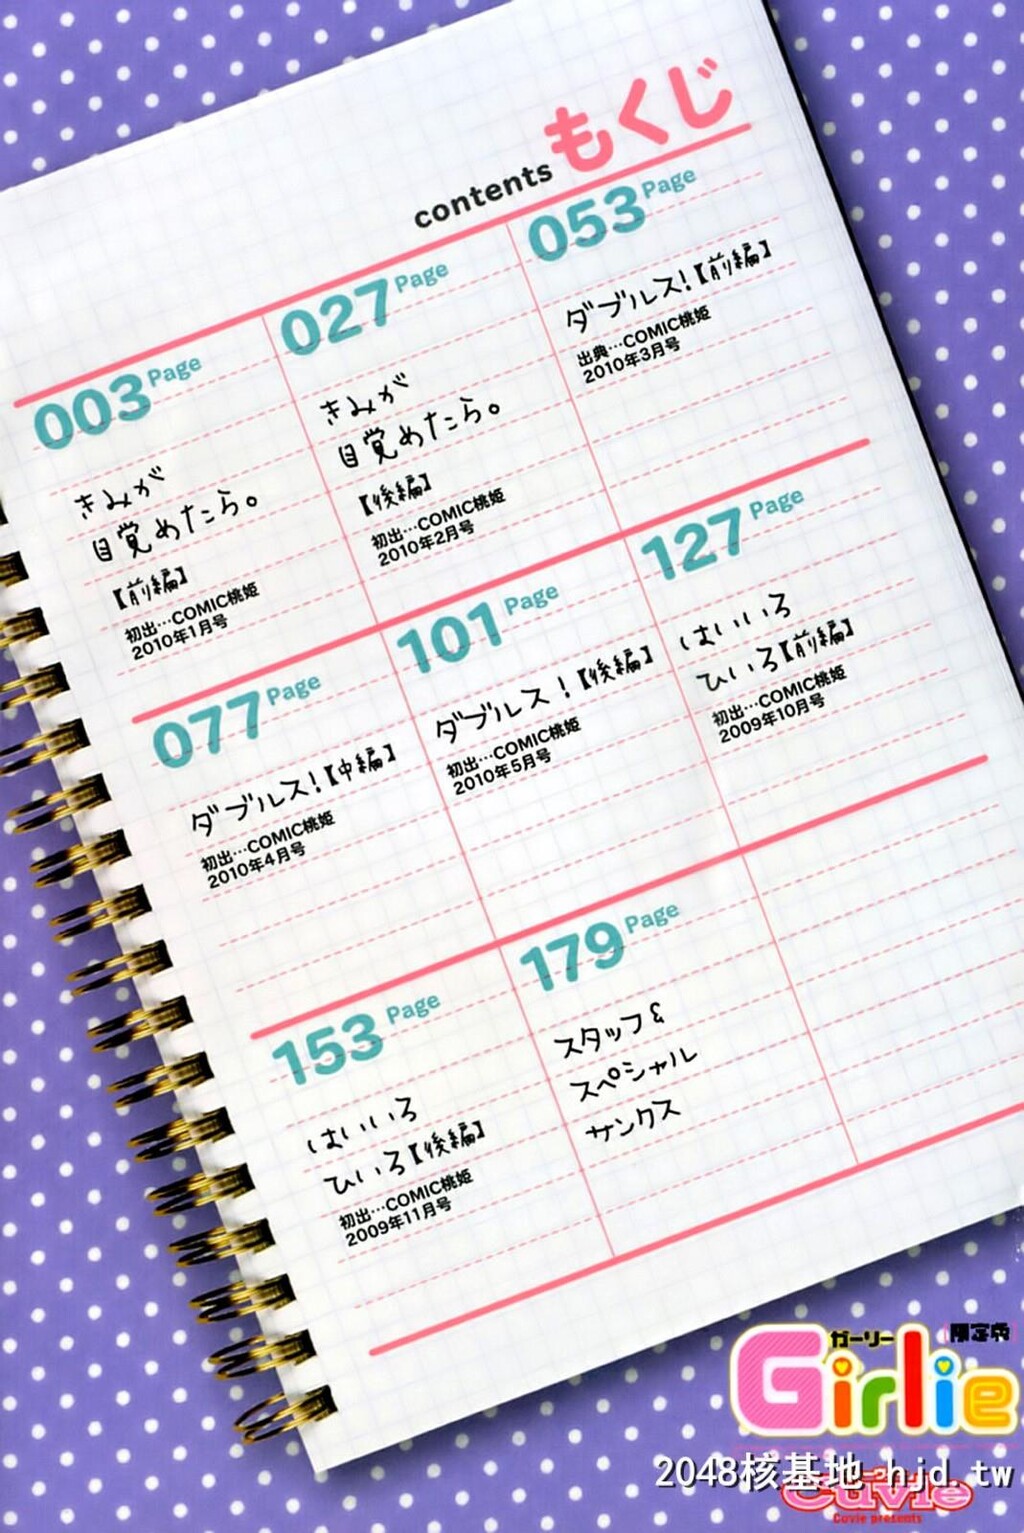 contents もくじ
003 Page
きみが
目覚めたら。
【前編】
初出…COMIC桃姫
2010年1月号
027 Page
きみが
目覚めたら。
【後編】
初出…COMIC桃姫
2010年2月号
053 Page
ダブルス!【前編】
出典…COMIC桃姫
2010年3月号
077 Page
ダブルス!【中編】
初出…COMIC桃姫
2010年4月号
101 Page
ダブルス!【後編】
初出…COMIC桃姫
2010年5月号
127 Page
はいいろ
ひいろ【前編】
初出…COMIC桃姫
2009年10月号
153 Page
はいいろ
ひいろ【後編】
初出…COMIC桃姫
2009年11月号
179 Page
スタッフ&
スペシャル
サンクス
ガーリー
限定版
Girlie
2048核基地 hjd.tw
Cuvie
Cuvie presents